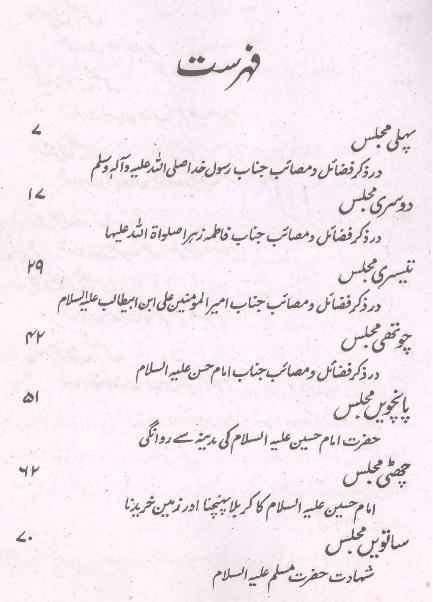 فہرست
پہلی مجلس ۷
در ذکر فضائل و مصائب جناب رسول خدا صلی اللہ علیہ و آلہ وسلم
دوسری مجلس ۱۷
در ذکر فضائل و مصائب جناب فاطمہ زہرا صلواۃ اللہ علیہا
تیسری مجلس ۲۹
در ذکر فضائل و مصائب جناب امیر المومنین علی ابن ابیطالب علیہ السلام
چوتھی مجلس ۴۲
در ذکر فضائل و مصائب جناب امام حسن علیہ السلام
پانچویں مجلس ۵۱
حضرت امام حسین علیہ السلام کی مدینہ سے روانگی
چھٹی مجلس ۶۲
امام حسین علیہ السلام کا کربلا پہنچنا اور زمین خریدنا
ساتویں مجلس ۷۰
شہادت حضرت مسلم علیہ السلام